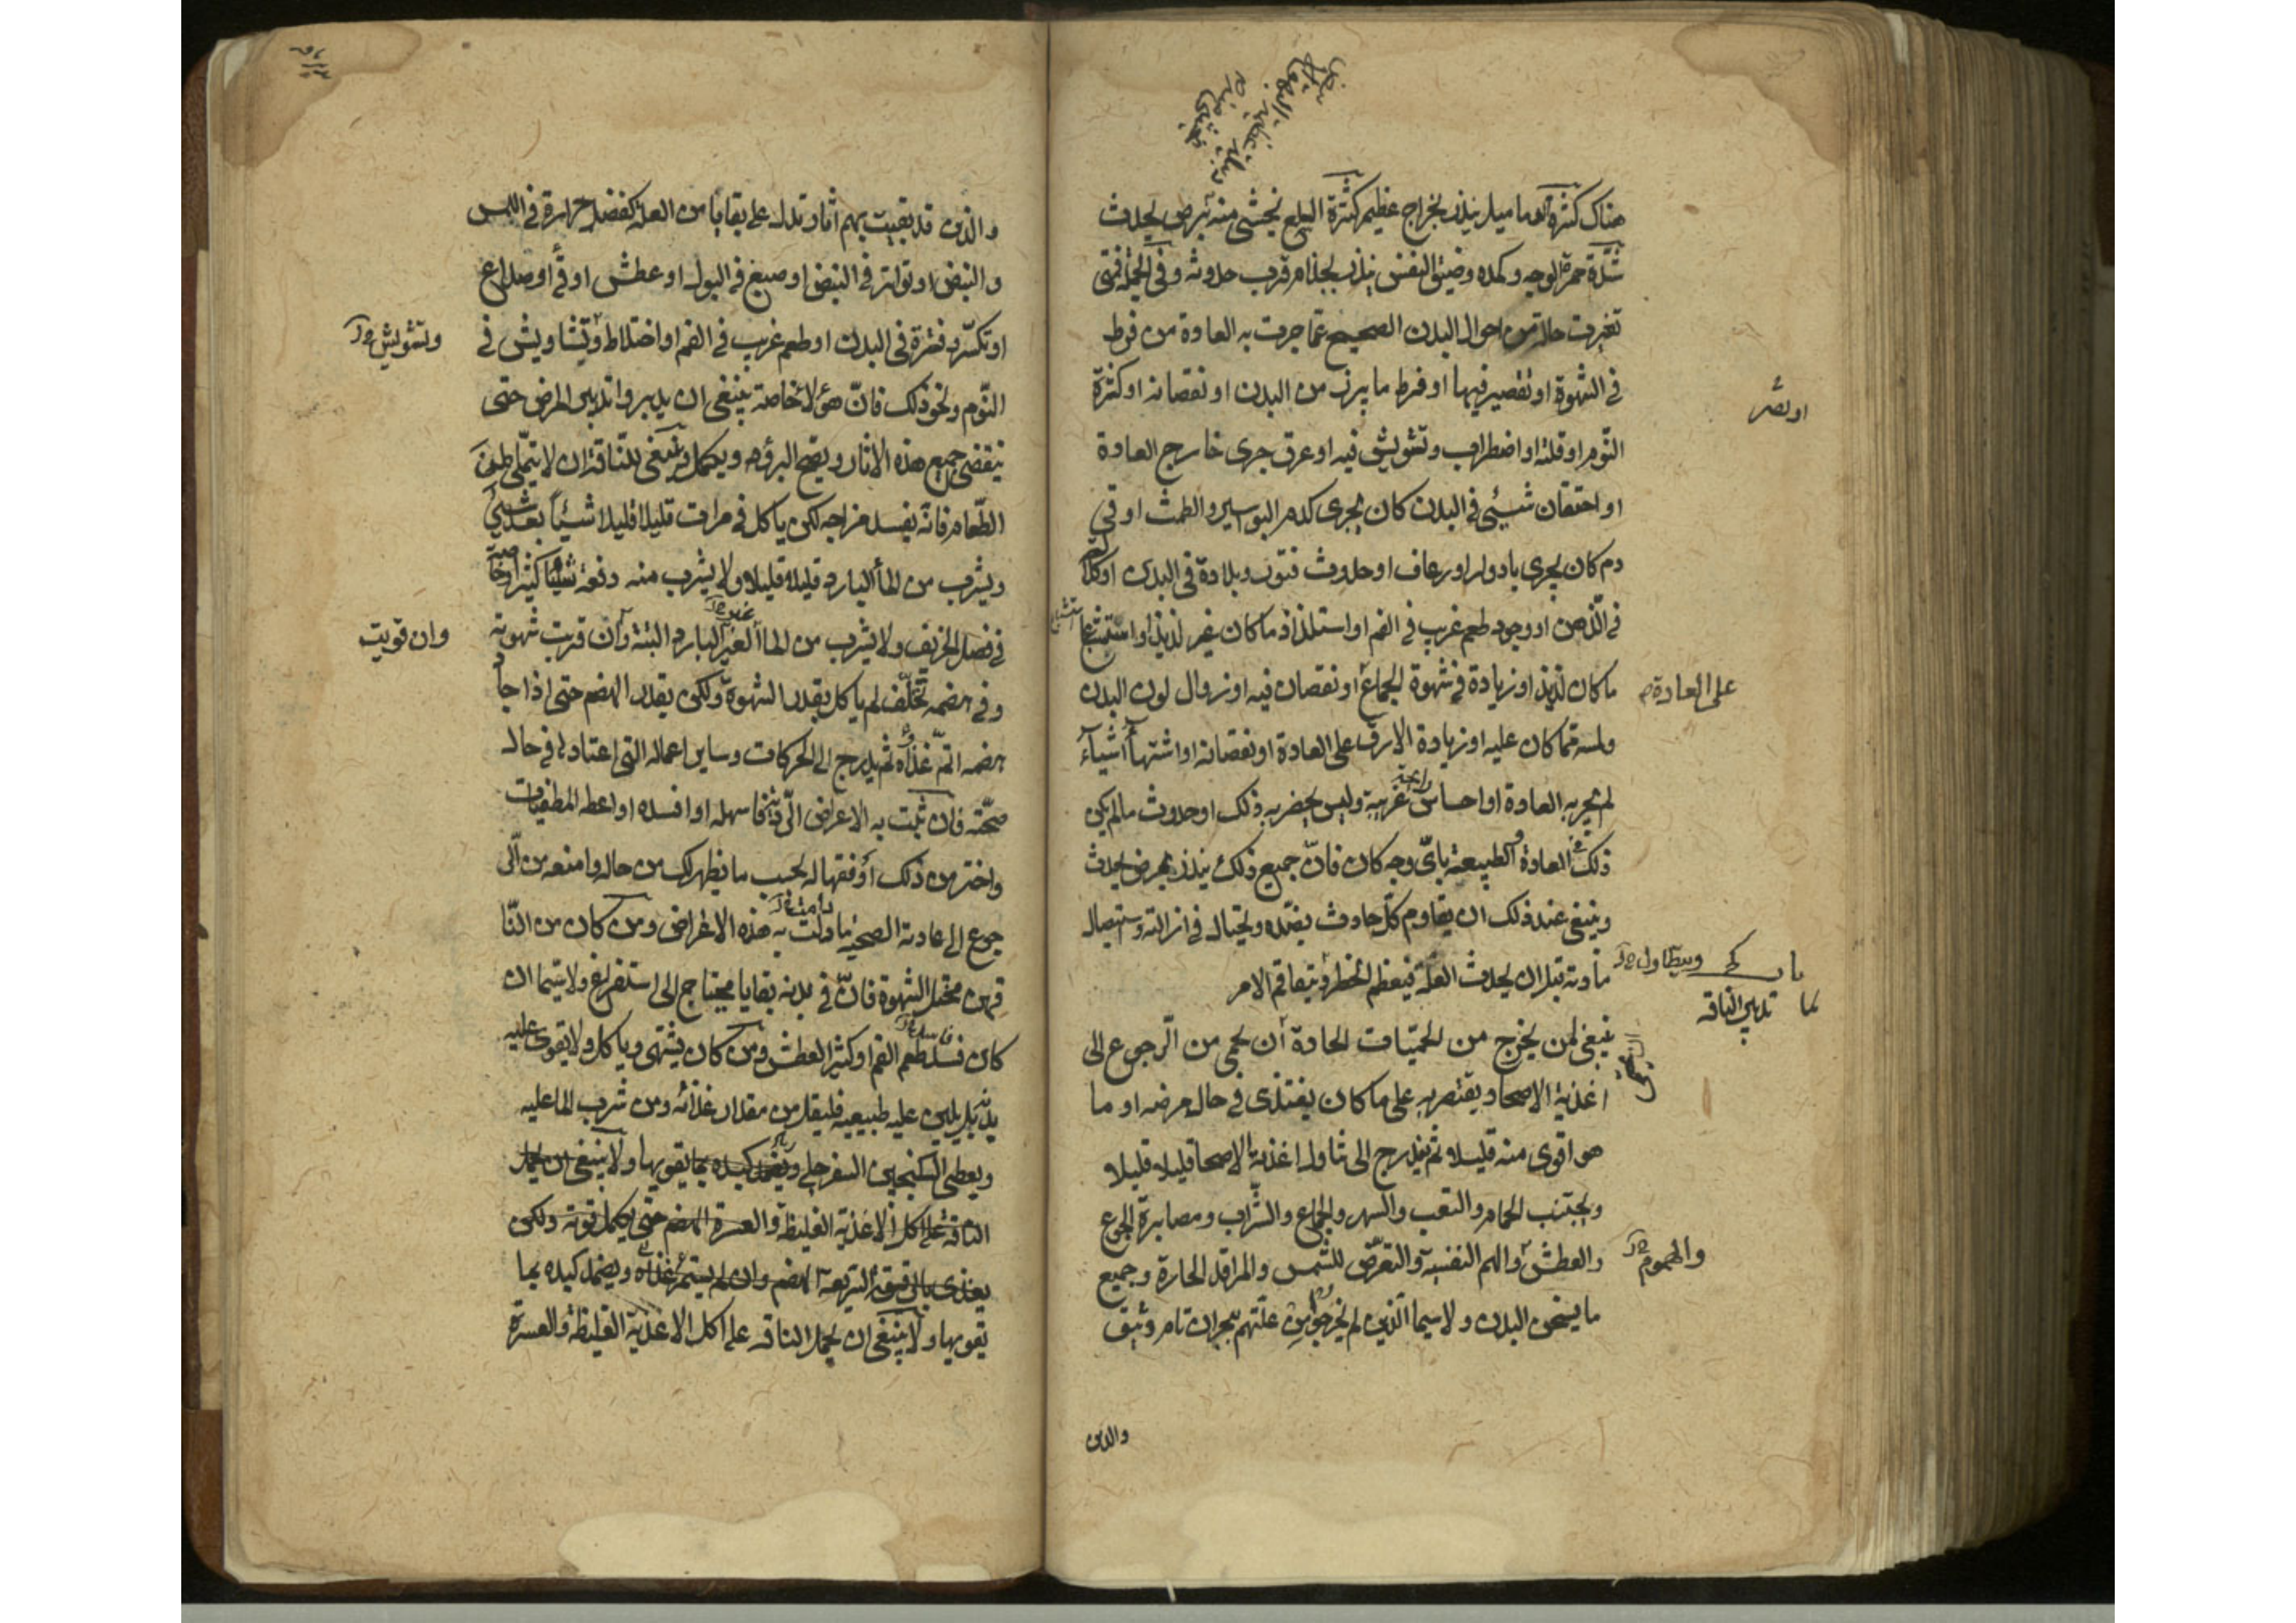 هناك كثرة الدماميل ينذر بخراج عظيم كثرة البلع يخشى منه برص يحدث
شدّة حمرة الوجه وكمده وضيق النفس ينذر بجذام قرب حدوثه وفي الجملة فمتى
تغيرت حالة من احوال البدن الصحيح عما جرت به العادة من فرط
في الشهوة او تقصير فيها او فرط ما يبرز من البدن او نقصانه او كثرة
النّوم او قلته او اضطراب وتشويش فيه او عرق جرى خارج العادة
او احتقان شيئ في البدن كان يجرى كدم البواسير والطمث او قي
دم كان يجرى بادوار او رعاف او حدوث فتور وبلادة في البدن او كلال
في الذهن او وجود طعم غريب في الفم او استلذاذ ما كان غير لذيذ او استبشاع
ما كان لذيذ او زيادة في شهوة الجماع او نقصان فيه او زوال لون البدن
على العادة
ولمسه عما كان عليه او زيادة الارق على العادة او نقصانه او اشتهاء اشياء
لم تجر به العادة او احساس رايحة غريبة وليس بحضر به ذلك او حدوث ما لم يكن
ذلك في العادة والطبيعة باىّ وجه كان فانّ جميع ذلك ينذر بمرض يحدث
وينبغى عند ذلك ان يقاوم كلّ حادث بضده ويحتال في ازالته واستيصال
مادته قبل ان يحدث العلة فيعظم الخطر ويتفاقم الامر
ويتطاول
باب
تدبير الناقه
ينبغى لمن يخرج من الحميّات الحادة ان يحمى من الرجوع الى
اغذية الاصحا ويقتصر به على ما كان يغتذى في حال مرضه او ما
هو اقوى منه قليلا ثم يتدرج الى تناول اغذية الاصحا قليلا قليلا
ويجتنب الحمام والتعب والسهر والجماع والشّراب ومصابرة الجوع
والعطش والهم النفسية والتعرّض للشمس والمراقد الحارة وجميع
والهموم
ما يسخن البدن ولاسيما الذين لم يخرجوا من علتهم ببحران تام وثيق
والذين
والذين قد بقيت بهم اثار تدل على بقايا من العلة كفضل حرارة في اللمس
والنبض او تواتر في النبض او صبغ في البول او عطش او قئ او صداع
او تكسّر وفترة في البدن او طعم غريب في الفم او اختلاط وتشاويش في
وتشويش
النّوم ونحو ذلك فانّ هؤلا خاصة ينبغى ان يدبروا تدبير المرض حتى
ينقضى جميع هذه الاثار ويصح البرؤ ويكمل وينبغى للناقه ان لا يتملى من
الطّعام فانّه يفسد مزاجه لكن ياكل في مرات قليلا قليلا شيئاً بعد شيئ
ويشرب من الماء البارد قليلا قليلا ولا يشرب منه دفعة شيئا كثيرا وخاصة
في فصل الخريف ولا يشرب من الماء الغير البارد البتة وان قربت شهوته
وان قويت
وفي هضمه تخلّف لم ياكل بقدر الشهوة ولكن بقدر الهضم حتى اذا جاد
هضمه اتمّ غذاءه ثم يدرج الى الحركات وساير اعماله التى اعتادها في حال
صحّته فان ثبت به الاعراض فاسهله او افسده او اعطه المطفيات
واختر من ذلك اوفقها له بحسب ما يظهر لك من حاله وامنعه من الر
جوع الى عادته الصحية ما دامت به هذه الاعراض ومن كان من النّا
قهين مختل الشهوة فانّ في بدنه بقايا محتاج الى استفراغ ولاسيما ان
كان فسد طعم الفم او كثير العطش ومن كان يشتهى وياكل ولا يقوى عليه
بدنه بل يلين عليه طبيعيه فليقل من مقدار غذائه ومن شرب الما عليه
ويعطى السكنجبين السفرجلى ويضمد كبده بما يقويها ولا ينبغى ان يحمل
الناقه على اكل الاغذية الغليظة والعسرة الهضم حتى يكمل قوته ولكن
يغذى بالرقيقة السّريعة الهضم وان لم يستمرئ غذاه ويضمد كبده بما
يقويها ولا ينبغى ان يحمل الناقه على اكل الاغذية الغليظة والعسرة